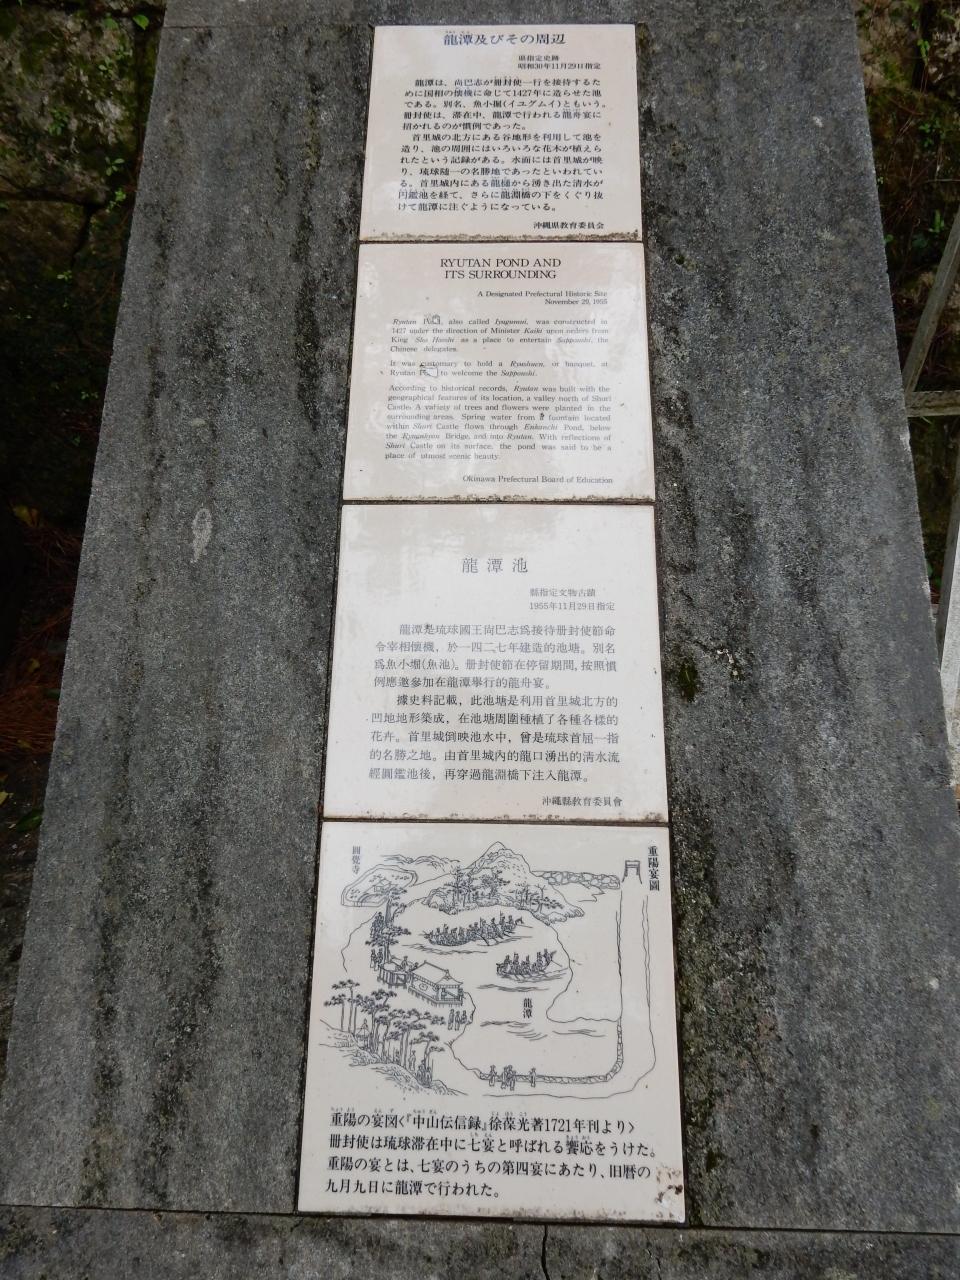 龍潭及びその周辺
県指定史跡
昭和30年11月29日指定
龍潭は、尚巴志が冊封使一行を接待するた
めに国相の懐機に命じて1427年に造らせた池
である。別名、魚小堀(イユグムイ)ともいう。
冊封使は、滞在中、龍潭で行われる龍舟宴に
招かれるのが慣例であった。
首里城の北方にある谷地形を利用して池を
造り、池の周囲にはいろいろな花木が植えら
れたという記録がある。水面には首里城が映
り、琉球随一の名勝地であったといわれてい
る。首里城内にある龍樋から湧き出た清水が
円鑑池を経て、さらに龍淵橋の下をくぐり抜
けて龍潭に注ぐようになっている。
沖縄県教育委員会
RYUTAN POND AND
ITS SURROUNDING
A Designated Prefectural Historic Site
November 29, 1955
Ryutan also called Iyugumui, was constructed in
1427 under the direction of Minister Kaiki upon orders from
King Sho Hashi as a place to entertain Sappoushi, the
Chinese delegates.
It was customary to hold a Ryushuen, or banquet, at
Ryutan to welcome the Sappoushi.
According to historical records, Ryutan was built with the
geographical features of its location, a valley north of Shuri
Castle. A variety of trees and flowers were planted in the
surrounding areas. Spring water from a fountain located
within Shuri Castle flows through Enkanchi Pond, below
the Bridge, and into Ryutan. With reflections of
Shuri Castle on its surface, the pond was said to be a
place of utmost scenic beauty.
Okinawa Prefectural Board of Education
龍潭池
縣指定文物古蹟
1955年11月29日指定
龍潭是琉球國王尚巴志爲接待册封使節命
令宰相懷機，於一四二七年建造的池塘。別名
爲魚小堀(魚池)。册封使節在停留期間，按照慣
例應邀參加在龍潭擧行的龍舟宴。
據史料記載，此池塘是利用首里城北方的
凹地地形築成，在池塘周圍種植了各種各樣的
花卉。首里城倒映池水中，曾是琉球首屈一指
的名勝之地。由首里城內的龍口湧出的清水流
經圓鑑池後，再穿過龍淵橋下注入龍潭。
沖繩縣敎育委員會
圓覺寺
重陽宴圖
龍潭
重陽の宴図〈『中山伝信録』徐葆光著1721年刊より〉
冊封使は琉球滞在中に七宴と呼ばれる饗応をうけた。
重陽の宴とは、七宴のうちの第四宴にあたり、旧暦の
九月九日に龍潭で行われた。